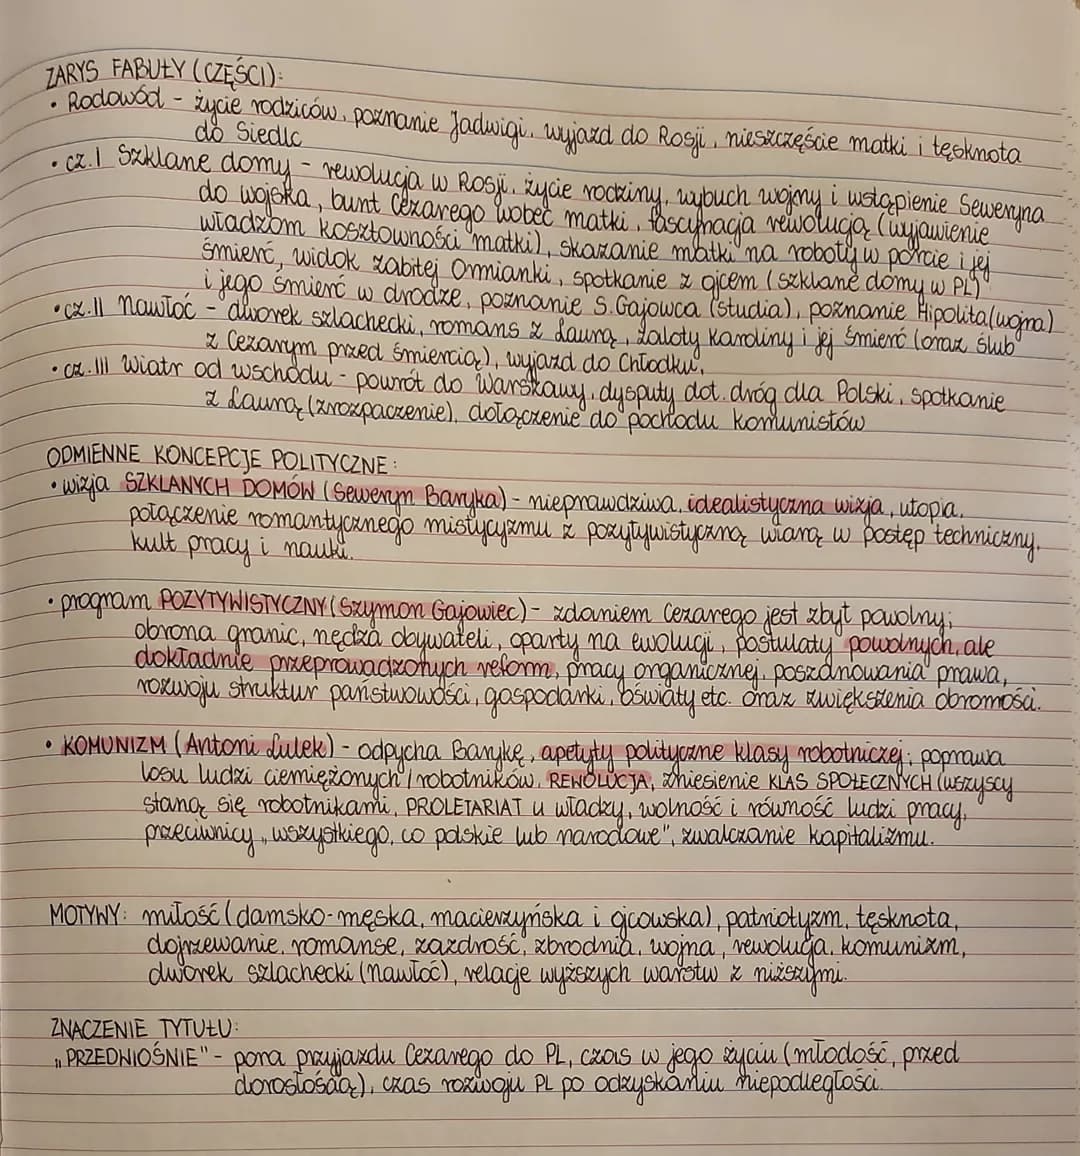 ZARYS FABUŁY (CZĘŚCI):
• Rodowód - życie rodziców, poznanie Jadwigi, wyjazd do Rosji, nieszczęście matki i tęsknota
do Siedlc
• cz.I Szklane domy - rewolucja w Rosji, życie rodziny, wybuch wojny i wstąpienie Seweryna
do wojska, bunt Cezarego wobec matki, fascynacja rewolucją (wyjawienie
władzom kosztowności matki), skazanie matki na roboty w porcie i jej
śmierć, widok zabitej Ormianki, spotkanie z ojcem (szklane domy w PL)
i jego śmierć w drodze, poznanie S. Gajowca (studia), poznanie Hipolita (wojna)
• cz.II Nawłoć - dworek szlachecki, romans z Laurą, zaloty Karoliny i jej śmierć (oraz ślub
z Cezarym przed śmiercią), wyjazd do Chłodku,
• cz.III Wiatr od wschodu - powrót do Warszawy, dysputy dot. dróg dla Polski, spotkanie
z Laurą (zrozpaczenie), dołączenie do pochodu komunistów
ODMIENNE KONCEPCJE POLITYCZNE:
• wizja SZKLANYCH DOMÓW (Seweryn Baryka) - nieprawdziwa, idealistyczna wizja, utopia,
połączenie romantycznego mistycyzmu z pozytywistyczną wiarą w postęp techniczny,
kult pracy i nauki.
• program POZYTYWISTYCZNY (Szymon Gajowiec) - zdaniem Cezarego jest zbyt powolny;
obrona granic, nędza obywateli, oparty na ewolucji, postulaty powolnych, ale
dokładnie przeprowadzonych reform, pracy organicznej, poszanowania prawa,
rozwoju struktur państwowości, gospodarki, oświaty etc. oraz zwiększenia obronności.
• KOMUNIZM (Antoni Lulek) - odpycha Barykę, apetyty polityczne klasy robotniczej; poprawa
losu ludzi ciemiężonych / robotników, REWOLUCJA, zniesienie KLAS SPOŁECZNYCH (wszyscy
staną się robotnikami, PROLETARIAT u władzy, wolność i równość ludzi pracy,
przeciwnicy „wszystkiego, co polskie lub narodowe", zwalczanie kapitalizmu.
MOTYWY: miłość (damsko-męska, macierzyńska i ojcowska), patriotyzm, tęsknota,
dojrzewanie, romanse, zazdrość, zbrodnia, wojna, rewolucja, komunizm,
dworek szlachecki (Nawłoć), relacje wyższych warstw z niższymi.
ZNACZENIE TYTUŁU:
„PRZEDNIOŚNIE" - pora przyjazdu Cezarego do PL, czas w jego życiu (młodość, przed
dorosłością), czas rozwoju PL po odzyskaniu niepodległości.